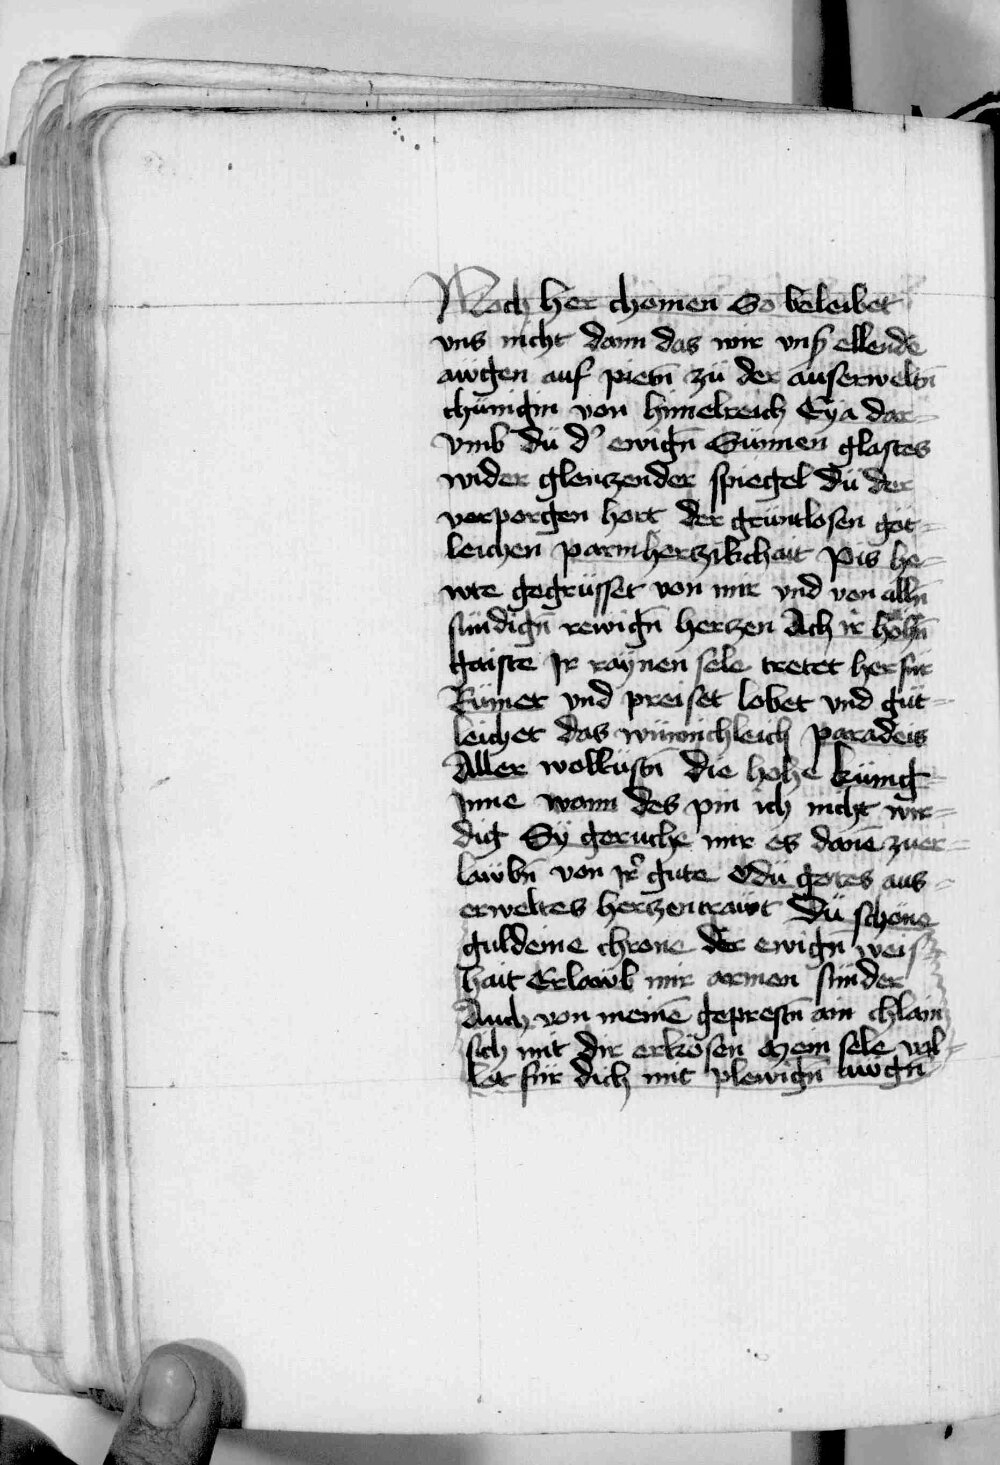 Noch her chomen So beleibet
vns nicht dann das wir vnsß ellende
awgen auf pietn̄ zü der auserweltn̄
chünigin von himelreich Eya dar-
vmb dü d' ewign̄ Sünnen glastes
wider glenzender spiegel Dü der
verporgen hort der grüntlosen göt-
leichen parmhertzikchait Pis he-
wte gegrüsset von mir vnd von alln̄
sündign̄ rewign̄ hertzen Ach ir hohn̄
gaiste Ir raynen sele tretet herfür
Rümet vnd preiset lobet vnd güt-
leichet das wünnichleich paradeis
Aller wollüstn̄ die hohe künig-
inne wann des pin ich nicht wir-
dig Sy geruche mir es danē zuer-
lawbn̄ von Ir' gute O dü gotes aus-
erweltes hertzentrawt Dü schöne
guldeine chrone der ewign̄ weis-
hait Erlawb mir armen sünder
Auch von meinē geprestn̄ ain chlain
sich mit dir erkösen Mein sele val-
let für dich mit plewign̄ awgn̄